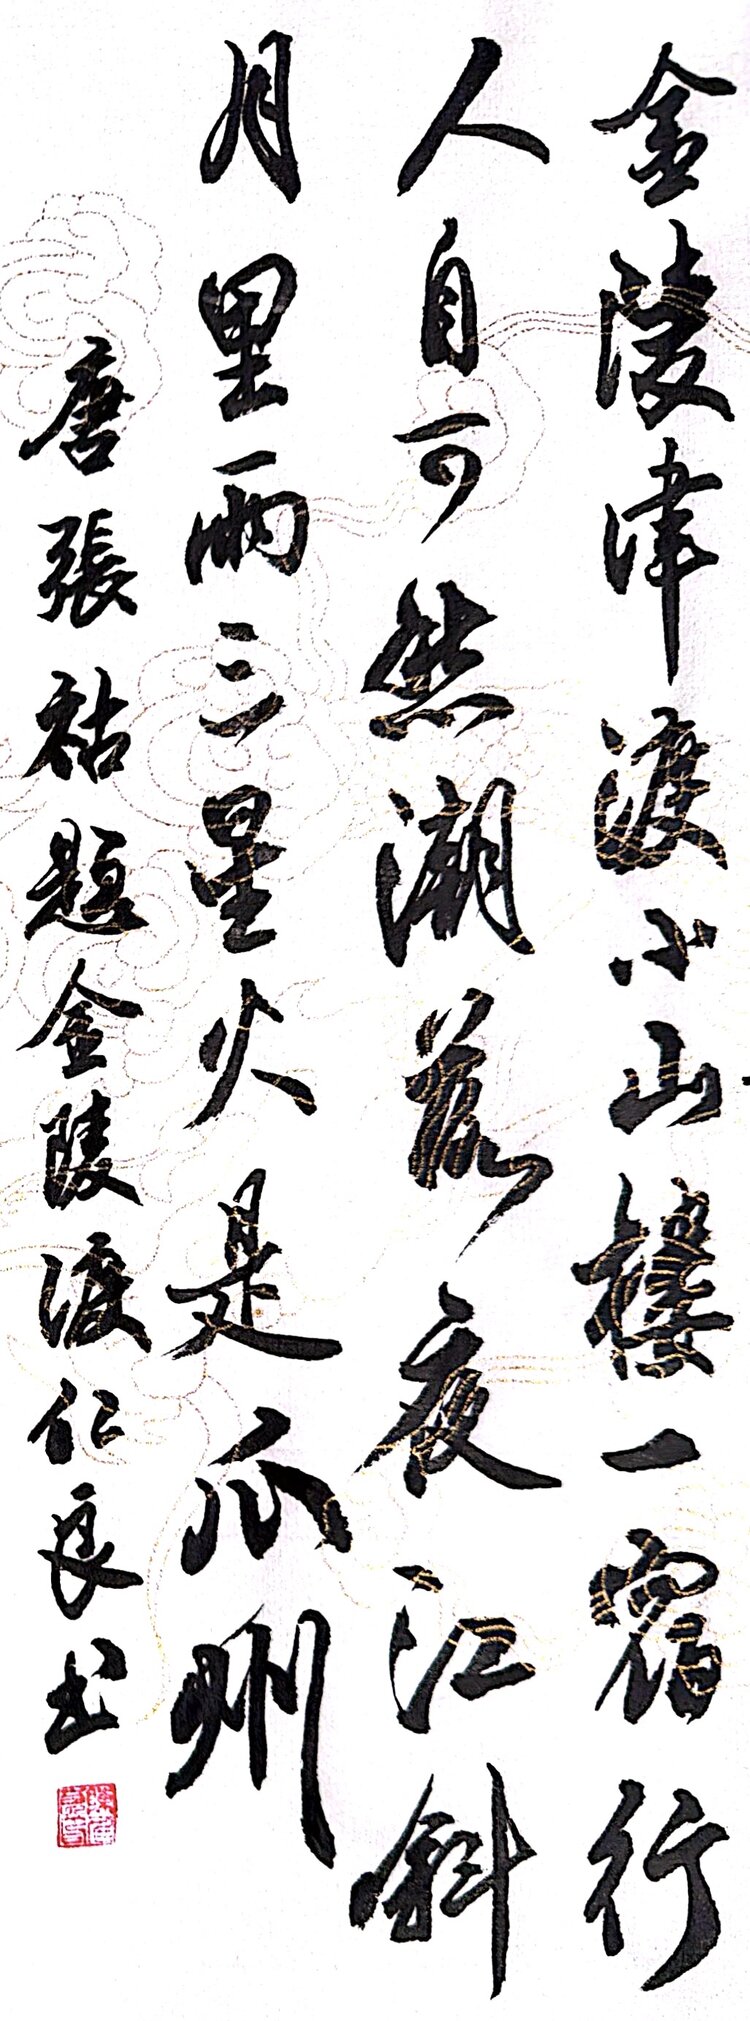 金陵津渡小山樓一宿行
人自可然潮落夜江斜
月里兩三星火是瓜州
唐張祜題金陵渡仁良书